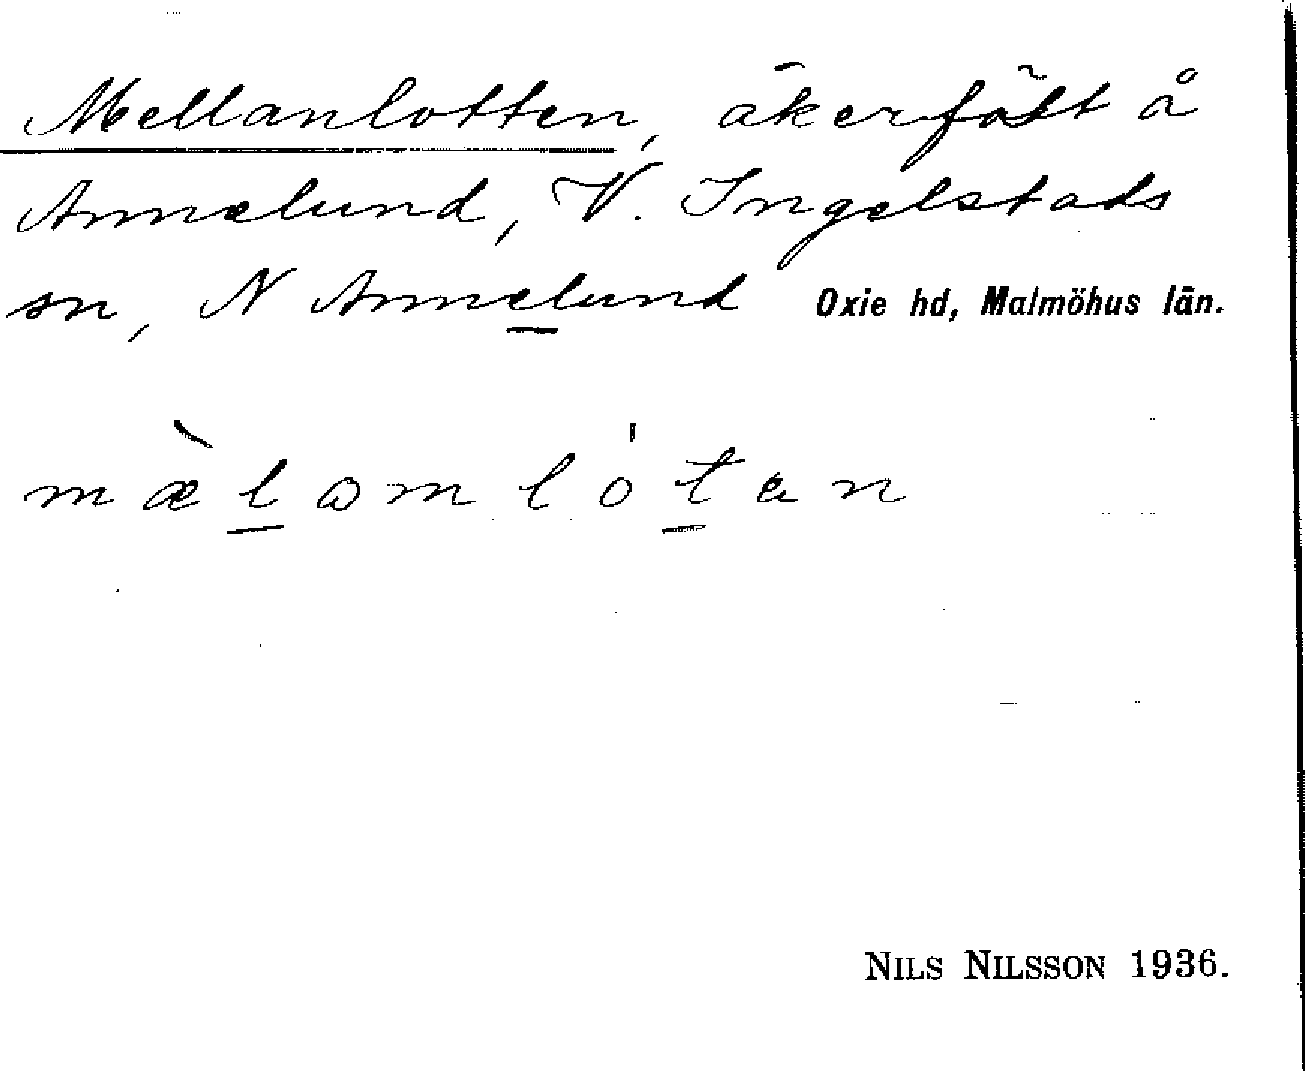 Mellanlotten, åkerfält å
Annelund, V. Ingelstads
sn, N Annelund Oxie hd, Malmöhus län.
mælomlotan
NILS NILSSON 1936.